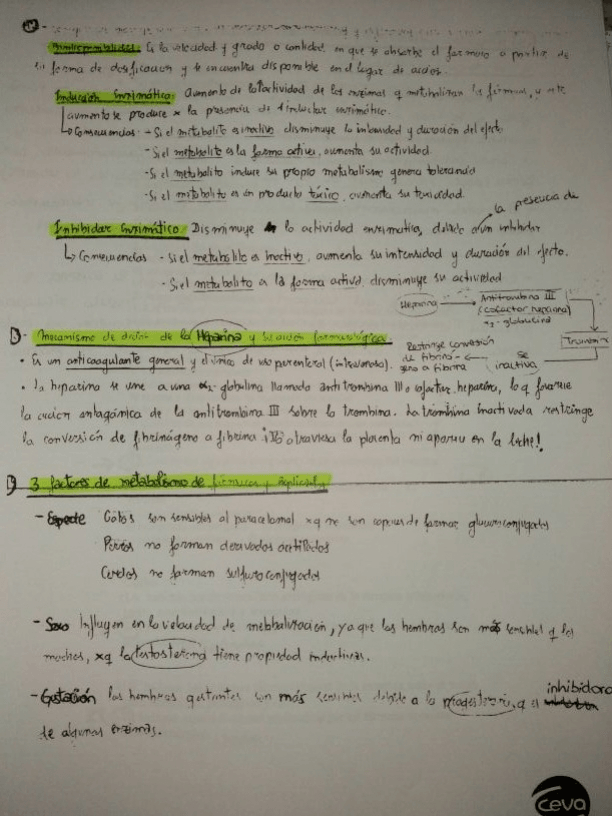 Biodisponibilidad: Es la velocidad y grado o cantidad en que se absorbe el fármaco a partir de
su forma de dosificación y se encuentra disponible en el lugar de acción.
Inducción Enzimática: Aumento de la actividad de las enzimas q metabolizan los fármacos, y este
aumento se produce x la presencia de 1 inductor enzimático.
↳ Consecuencias - Si el metabolito es inactivo disminuye la intensidad y duración del efecto
- Si el metabolito es la forma activa, aumenta su actividad
- Si el metabolito induce su propio metabolismo genera tolerancia
- Si el metabolito es un producto tóxico, aumenta su toxicidad.
Inhibidor Enzimático Disminuye la actividad enzimática, debido a la presencia de un inhibidor
↳ Consecuencias - Si el metabolito es inactivo, aumenta su intensidad y duración del efecto.
- Si el metabolito a la forma activa disminuye su actividad
Heparina → Antitrombina III
(cofactor heparina)
α2-globulina
Trombina
se inactiva
Restringe conversión
de fibrino-
geno a fibrina
- Mecanismo de acción de la Heparina y su acción farmacológica
• Es un anticoagulante general y el único de uso parenteral (intravenoso).
• La heparina se une a una α2-globulina llamada antitrombina III o cofactor heparina, lo q favorece
la acción antagónica de la antitrombina III sobre la trombina. La trombina inactivada restringe
la conversión de fibrinógeno a fibrina ¡No atraviesa la placenta ni aparece en la leche!
3 factores de metabolismo de fármacos y explícalos
- Especie Gatos son sensibles al paracetamol xq no son capaces de formar glucuroconjugados
Perros no forman derivados acetilados
Cerdos no forman sulfuroconjugados
- Sexo Influyen en la velocidad de metabolización, ya que las hembras son más sensibles q los
machos, xq la testosterona tiene propiedad inductivas.
- Gestación las hembras gestantes son más sensibles debido a la progesterona, q es inhibidora
de algunas enzimas.
ceva